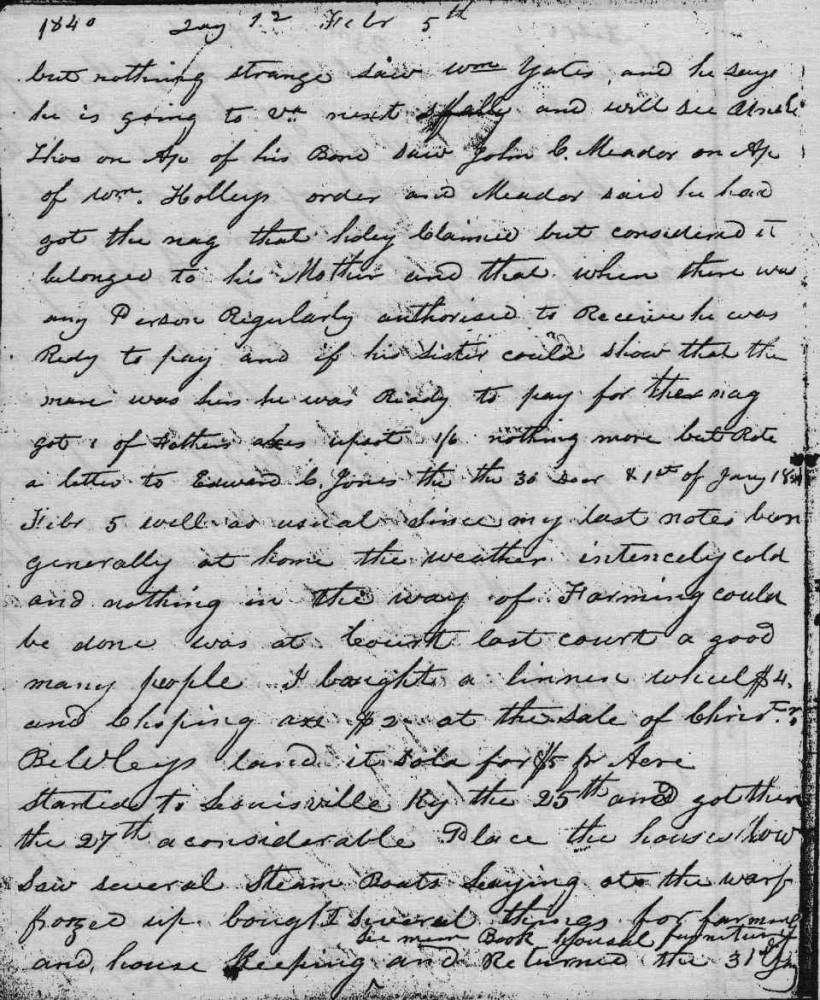 1840 Jay 12 Febr 5th
but nothing strange saw Wm Yates and he says
he is going to Va next and will see Uncle
Thos on Ap of his Bond saw John C. Meador on Ap
of Wm. Holleys order and Meador said he had
got the nag that holey Claimed but considered it
belonged to his Mother and that when there was
any Person Regularly authorised to Receive he was
Redy to pay and if his Sister could show that the
mare was hers he was Ready to pay for the nag
got 1 of Fathers axes upsot 1/6 nothing more but Rote
a letter to Edward C. Jones the the 30 Decr & 1st of Jany
Febr 5 well as usual Since my last notes ben
generally at home the weather intencely cold
and nothing in the way of Farming could
be done was at Court last court a good
many people I bought a linnen wheel $4.
and Choping axe $2 at the Sale of Christr.
Bewleys land it Sold for $5 pr Acre
Started to Louisville Ky the 25th and got there
the 27th a considerable Place the houses low
Saw several Steam Boats Laying at the warf
frozed up bought Several things for farming
see mem Book housal furniture
and house Keeping and Returned the 31